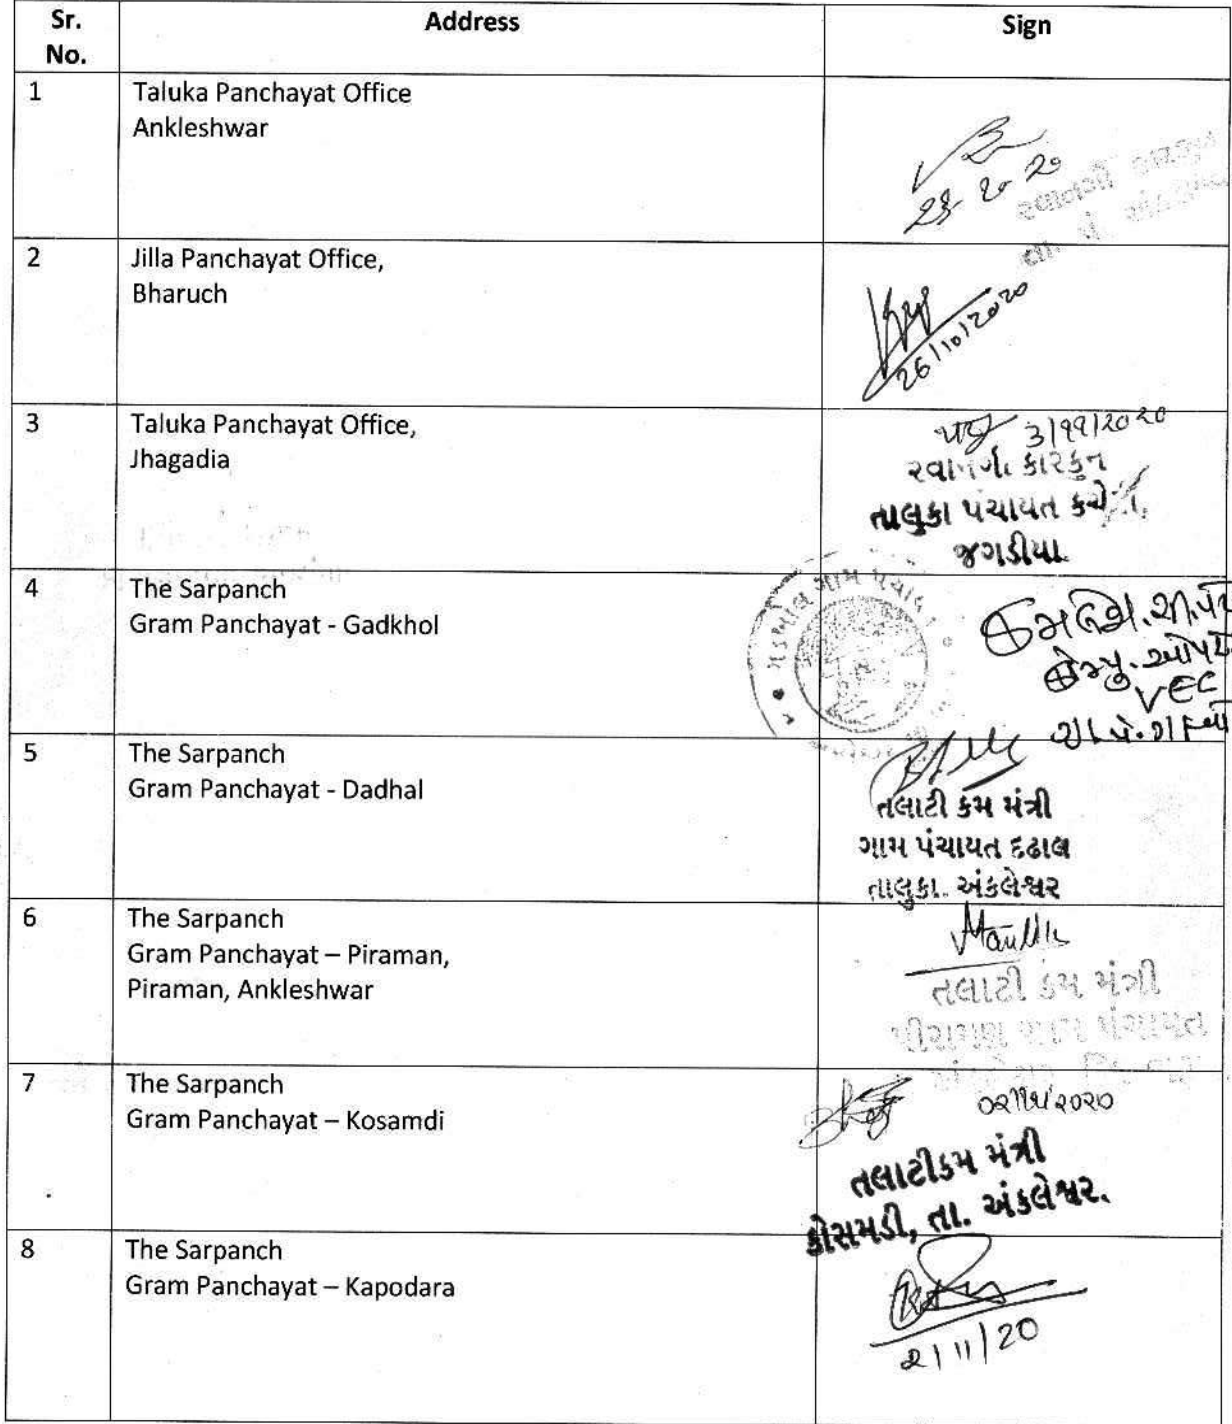 Sr. No.
Address
Sign
1
Taluka Panchayat Office
Ankleshwar
2
Jilla Panchayat Office,
Bharuch
26/10/2020
3
Taluka Panchayat Office,
Jhagadia
3/११/2020
કારકુન
તાલુકા પંચાયત
જગડીયા
4
The Sarpanch
Gram Panchayat - Gadkhol
VEC
5
The Sarpanch
Gram Panchayat - Dadhal
તલાટી કમ મંત્રી
ગામ પંચાયત દઢાલ
તાલુકા. અંકલેશ્વર
6
The Sarpanch
Gram Panchayat – Piraman,
Piraman, Ankleshwar
તલાટી કમ મંત્રી
7
The Sarpanch
Gram Panchayat – Kosamdi
તલાટીકમ મંત્રી
કોસમડી, તા. અંકલેશ્વર.
8
The Sarpanch
Gram Panchayat – Kapodara
2/11/20